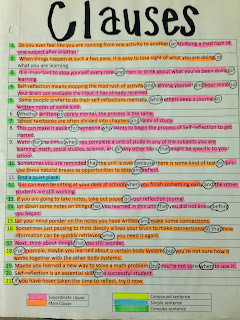 Clauses
1. Do you ever feel like you are running from one activity to another or studying a mad rush of
one subject after another?
2. When things happen at such a fast pace, it is easy to lose sight of what you are doing or
what you are learning.
3. It is important to stop yourself every now and then to think about what you've been doing or
learning.
4. Self-reflection means stopping the mad rush of activity and calming yourself so your mind so
your brain can evaluate the input it has already received.
5. Some people prefer to do their self-reflections mentally, while others keep a journal or
written notes of some kind.
6. Whether written or purely mental, the process is the same.
7. School textbooks are often divided into chapters or units of study.
8. This can make it easier for someone who wants to begin the process of Self-reflection to get
started.
9. Watch for the time when you complete a unit of study in any of the subjects you are
learning: math, social studies, science, or any other that might be specific to your
school.
10. Sometimes you are reminded that the unit is over because there is some kind of test or
Use these natural breaks as opportunities to stop and reflect.
11. Find a quiet place.
12. This can even be sitting at your desk at school when you finish something early and the other
students are still working.
13. If you are going to take notes, take out paper or your reflection journal.
14. Jot down some notes on things that you learned in this unit that you did not know before
you began.
15. Let your mind ponder on the notes you have written and make some connections.
16. Sometimes just pausing to think deeply allows your brain to make connections so that more
information can be quickly retrieved when you need it again.
17. Next, think about things that you still wonder.
18. For example, maybe you learned about a certain body System but you're not sure how it
works together with the other body systems.
19. Maybe you learned a new way to solve a math problem, but you're not sure when to use it!
20. Self-reflection is an essential skill for a successful student.
21. If you have never taken the time to reflect, try it now.
Subordinate clause
Main Clause
Compound sentence
Simple sentence
Complex sentence